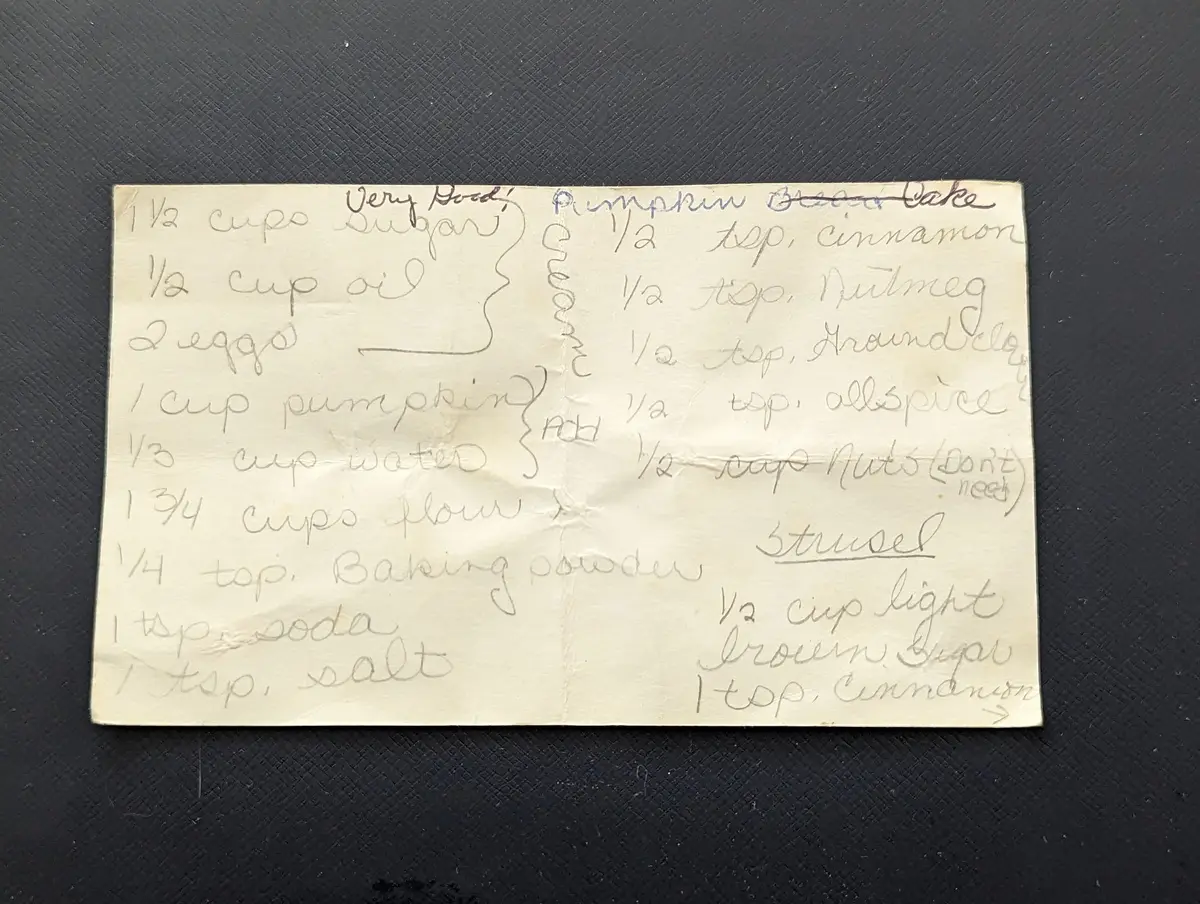 Very Good! Pumpkin Bread Cake
1 1/2 cups sugar
1/2 cup oil
2 eggs
Cream
1 cup pumpkin
1/3 cup water
Add
1 3/4 cups flour
1/4 tsp. Baking powder
1 tsp. soda
1 tsp. salt
1/2 tsp. cinnamon
1/2 tsp. Nutmeg
1/2 tsp. Ground cloves
1/2 tsp. allspice
1/2 cup Nuts (Don't
need)
Strusel
1/2 cup light
brown sugar
1 tsp. Cinnamon
→